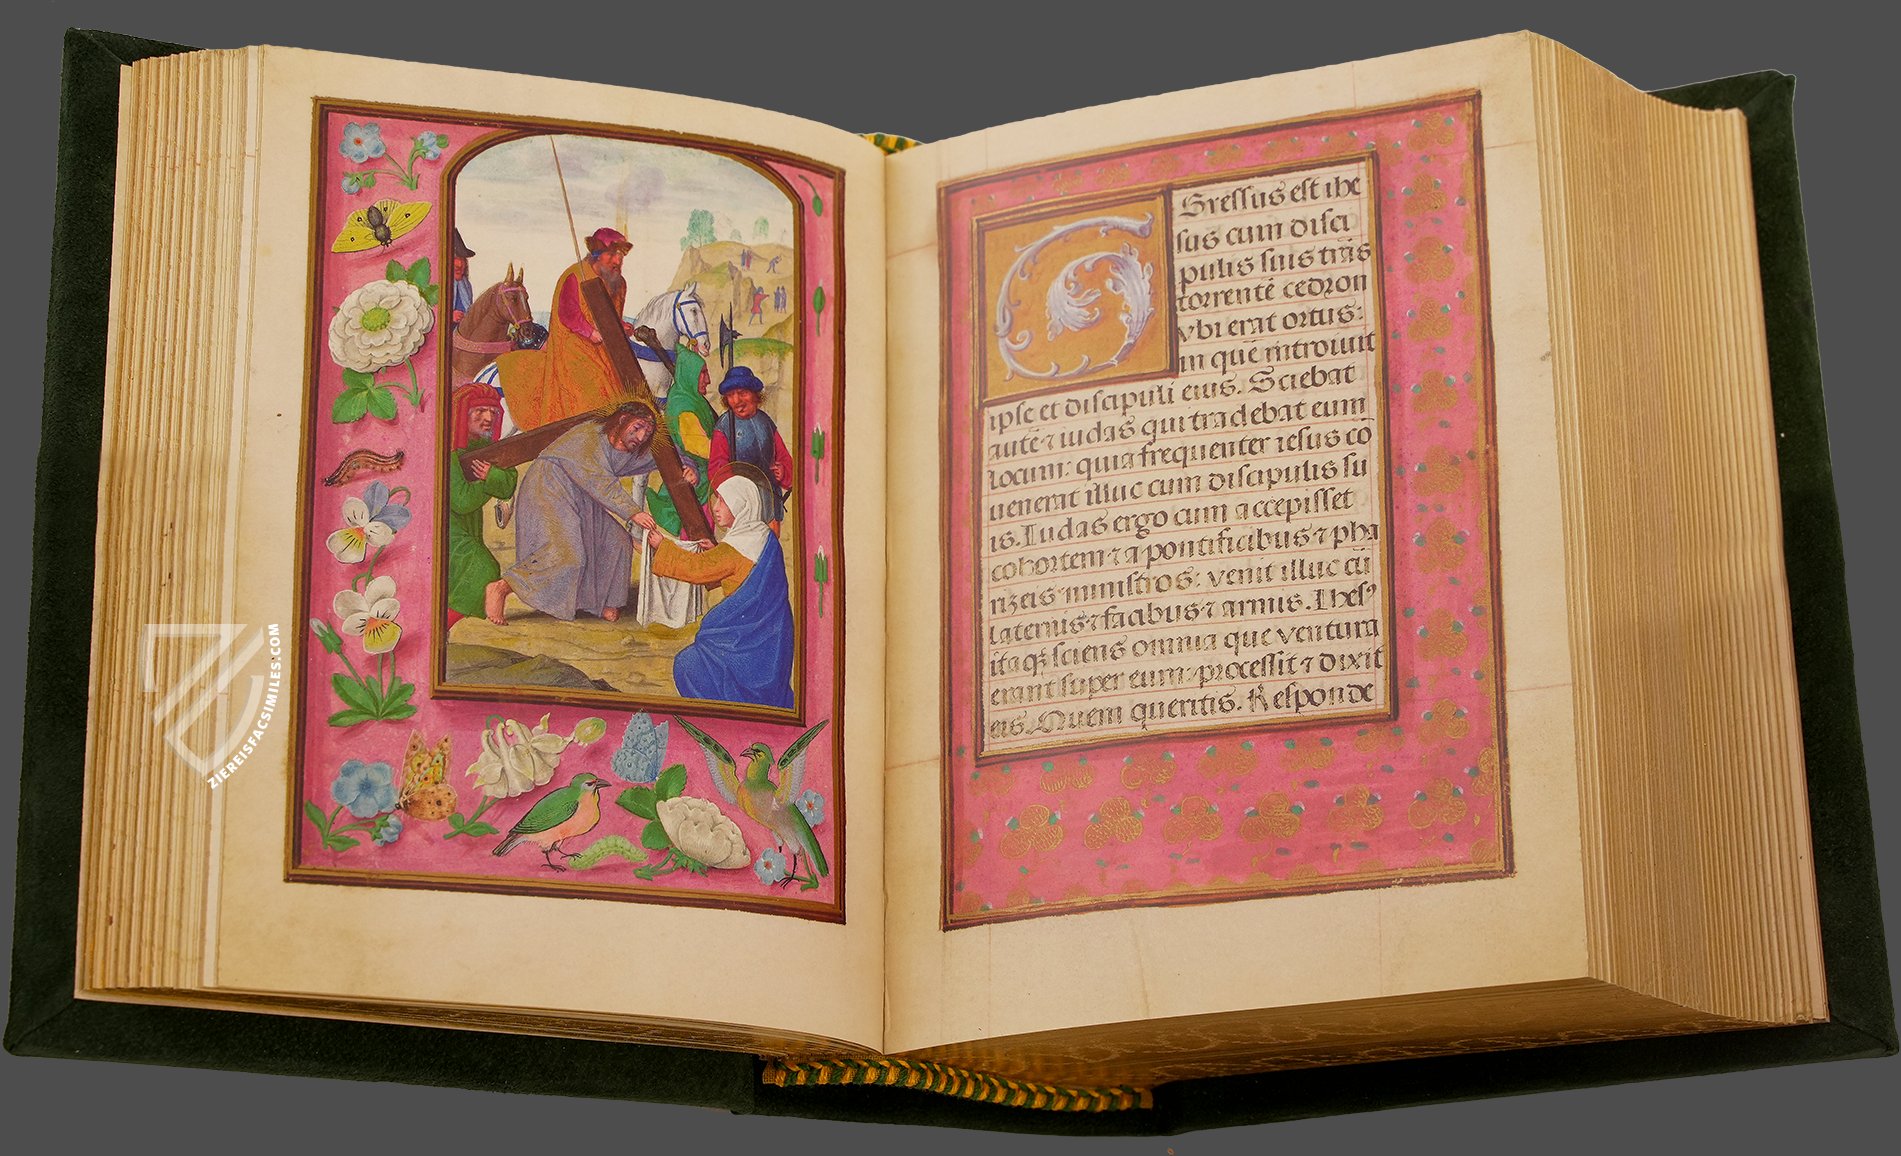 ZIEREISFACSIMILES.COM
Gressus est ihe
sus cum disci
pulis suis trãs
torrentẽ cedron
vbi erat ortus:
in quẽ introiuit
ipse et discipuli eius. Sciebat
autẽ ⁊ iudas qui tradebat eum
locum: quia frequenter iesus cõ
uenerat illuc cum discipulis su
is. Iudas ergo cum accepisset
cohortem ⁊ a pontificibus ⁊ pha
rizeis ministros: venit illuc cũ
laternis ⁊ facibus ⁊ armis. Ihesꝰ
itaqꝫ sciens omnia que ventura
erant super eum: processit ⁊ dixit
eis. Quem queritis. Responde